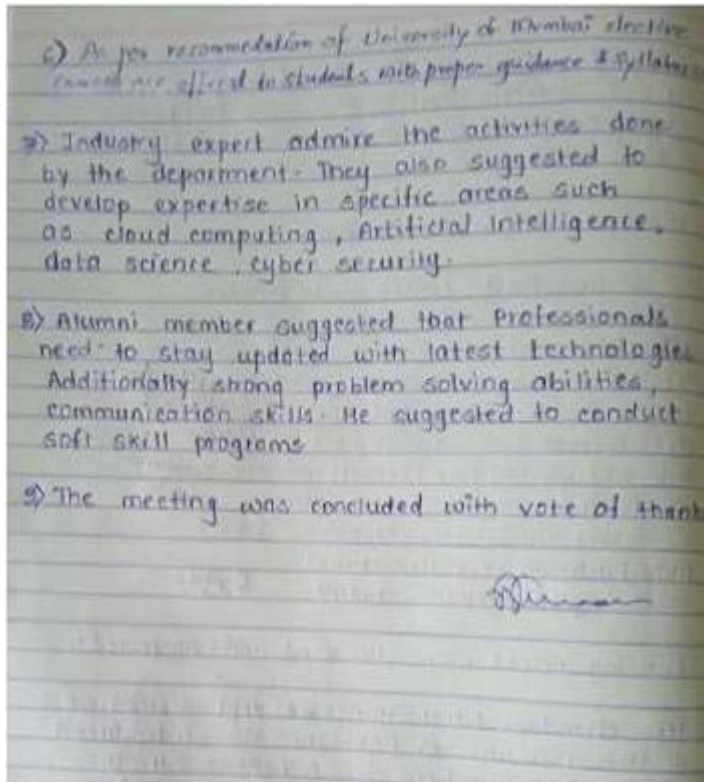 c) As per recommedation of University of Mumbai elective
are offered to students with proper guidance & syllabus
7) Industry expert admire the activities done
by the deparment. They also suggested to
develop expertise in specific areas such
as cloud computing, Artificial Intelligence,
data science, cyber security.
8) Alumni member suggested that Professionals
need to stay updated with latest technologies
Additionally strong problem solving abilities,
communication skills. He suggested to conduct
soft skill programs
9) The meeting was concluded with vote of thank